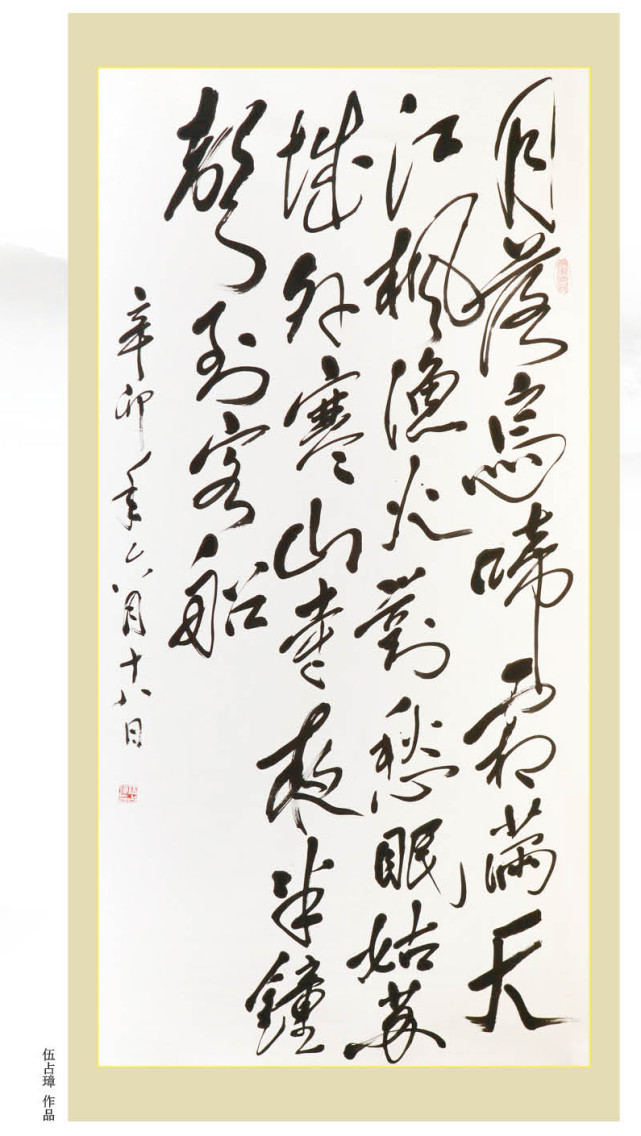 月落烏啼霜滿天
江楓漁火對愁眠姑蘇
城外寒山寺夜半鐘
聲到客船
辛卯年六月十八日
伍占璋 作品